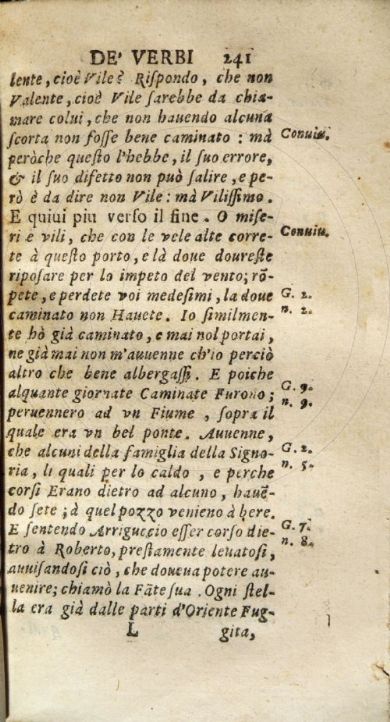 DE' VERBI 241
lente, cioè Vile? Rispondo, che non
Valente, cioè Vile sarebbe da chia-
mare colui, che non hauendo alcuna
scorta non fosse bene caminato: mà Conuiu.
peròche questo l'hebbe, il suo errore,
& il suo difetto non può salire, e pe-
rò è da dire non Vile: mà Vilissimo.
E quiui piu verso il fine. O mise-
ri e vili, che con le vele alte corre- Conuiu.
te à questo porto, e là doue doureste
riposare per lo impeto del vento; rõ-
pete, e perdete voi medesimi, la doue G. 2.
caminato non Hauete. Io similmen- n. 2.
te hò già caminato, e mai nol portai,
ne già mai non m'auuenne ch'io perciò
altro che bene albergassi. E poiche
alquante giornate Caminate Furono; G. 9.
peruennero ad vn Fiume, sopra il n. 9.
quale era vn bel ponte. Auuenne,
che alcuni della famiglia della Signo- G. 2.
ria, li quali per lo caldo, e perche n. 5.
corsi Erano dietro ad alcuno, hauẽ-
do sete; à quel pozzo venieno à bere.
E sentendo Arriguccio esser corso die- G. 7.
tro à Roberto, prestamente leuatosi, n. 8.
auuisandosi ciò, che doueua potere au-
uenire; chiamò la Fãte sua. Ogni stel-
la era già dalle parti d'Oriente Fug-
L gita,